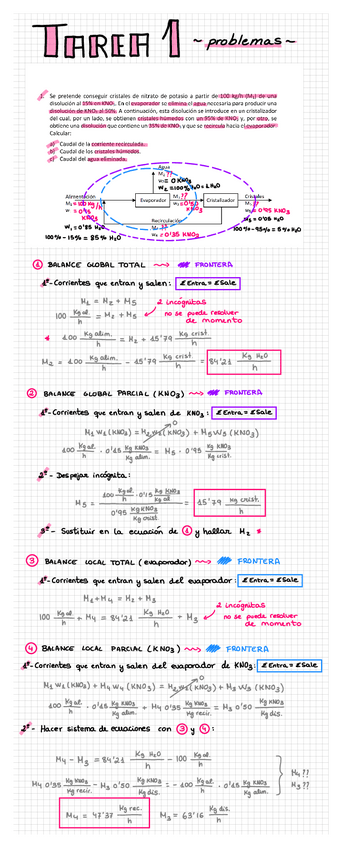 TAREA 1
~ problemas ~
1. Se pretende conseguir cristales de nitrato de potasio a partir de 100 kg/h (M₁) de una
disolución al 15% en KNO₃. En el evaporador se elimina el agua necesaria para producir una
disolución de KNO₃ al 50%. A continuación, esta disolución se introduce en un cristalizador
del cual, por un lado, se obtienen cristales húmedos con un 95% de KNO₃ y, por otro, se
obtiene una disolución que contiene un 35% de KNO₃ y que se recircula hacia el evaporador.
Calcular:
a) Caudal de la corriente recirculada.
b) Caudal de los cristales húmedos.
c) Caudal del agua eliminada.
Agua
M₂ ??
w₂ = 0 KNO₃
w₂ = 100% H₂O = 1 H₂O
Alimentación
M₁ = 100 kg/h
w₁ = 0'15 KNO₃
Evaporador
M₃ ??
w₃ = 0'50 KNO₃
Cristalizador
Cristales
M₅ ??
w₅ = 0'95 KNO₃
Recirculación
M₄ ??
w₄ = 0'35 KNO₃
w₁ = 0'85 H₂O
100% - 15% = 85% H₂O
w₅ = 0'05 H₂O
100% - 95% = 5% H₂O
1 BALANCE GLOBAL TOTAL FRONTERA
1º- Corrientes que entran y salen: Σ Entra = Σ Sale
M₁ = M₂ + M₅
100 Kg al. / h = M₂ + M₅
2 incógnitas
no se puede resolver
de momento
* 100 Kg alim. / h = M₂ + 15'79 Kg crist. / h
M₂ = 100 Kg alim. / h - 15'79 Kg crist. / h = 84'21 Kg H₂O / h
2 BALANCE GLOBAL PARCIAL (KNO₃) FRONTERA
1º- Corrientes que entran y salen de KNO₃: Σ Entra = Σ Sale
M₁ w₁ (KNO₃) = M₂ w₂ (KNO₃) + M₅ w₅ (KNO₃)
0
100 Kg al. / h · 0'15 Kg KNO₃ / Kg alim. = M₅ · 0'95 Kg KNO₃ / Kg crist.
2º- Despejar incógnita:
M₅ = 100 Kg al. / h · 0'15 Kg KNO₃ / Kg al. / 0'95 Kg KNO₃ / Kg crist. = 15'79 Kg crist. / h
3º- Sustituir en la ecuación de 1 y hallar M₂ *
3 BALANCE LOCAL TOTAL (evaporador) FRONTERA
1º- Corrientes que entran y salen del evaporador: Σ Entra = Σ Sale
M₁ + M₄ = M₂ + M₃
100 Kg al. / h + M₄ = 84'21 Kg H₂O / h + M₃
2 incógnitas
no se puede resolver
de momento
4 BALANCE LOCAL PARCIAL (KNO₃) FRONTERA
1º- Corrientes que entran y salen del evaporador de KNO₃: Σ Entra = Σ Sale
M₁ w₁ (KNO₃) + M₄ w₄ (KNO₃) = M₂ w₂ (KNO₃) + M₃ w₃ (KNO₃)
0
100 Kg al. / h · 0'15 Kg KNO₃ / Kg alim. + M₄ 0'35 Kg KNO₃ / Kg recir. = M₃ 0'50 Kg KNO₃ / Kg dis.
2º- Hacer sistema de ecuaciones con 3 y 4:
M₄ - M₃ = 84'21 Kg H₂O / h - 100 Kg al. / h
M₄ 0'35 Kg KNO₃ / Kg recir. - M₃ 0'50 Kg KNO₃ / Kg dis. = - 100 Kg al. / h · 0'15 Kg KNO₃ / Kg alim.
M₄ ??
M₃ ??
M₄ = 47'37 Kg rec. / h M₃ = 63'16 Kg dis. / h